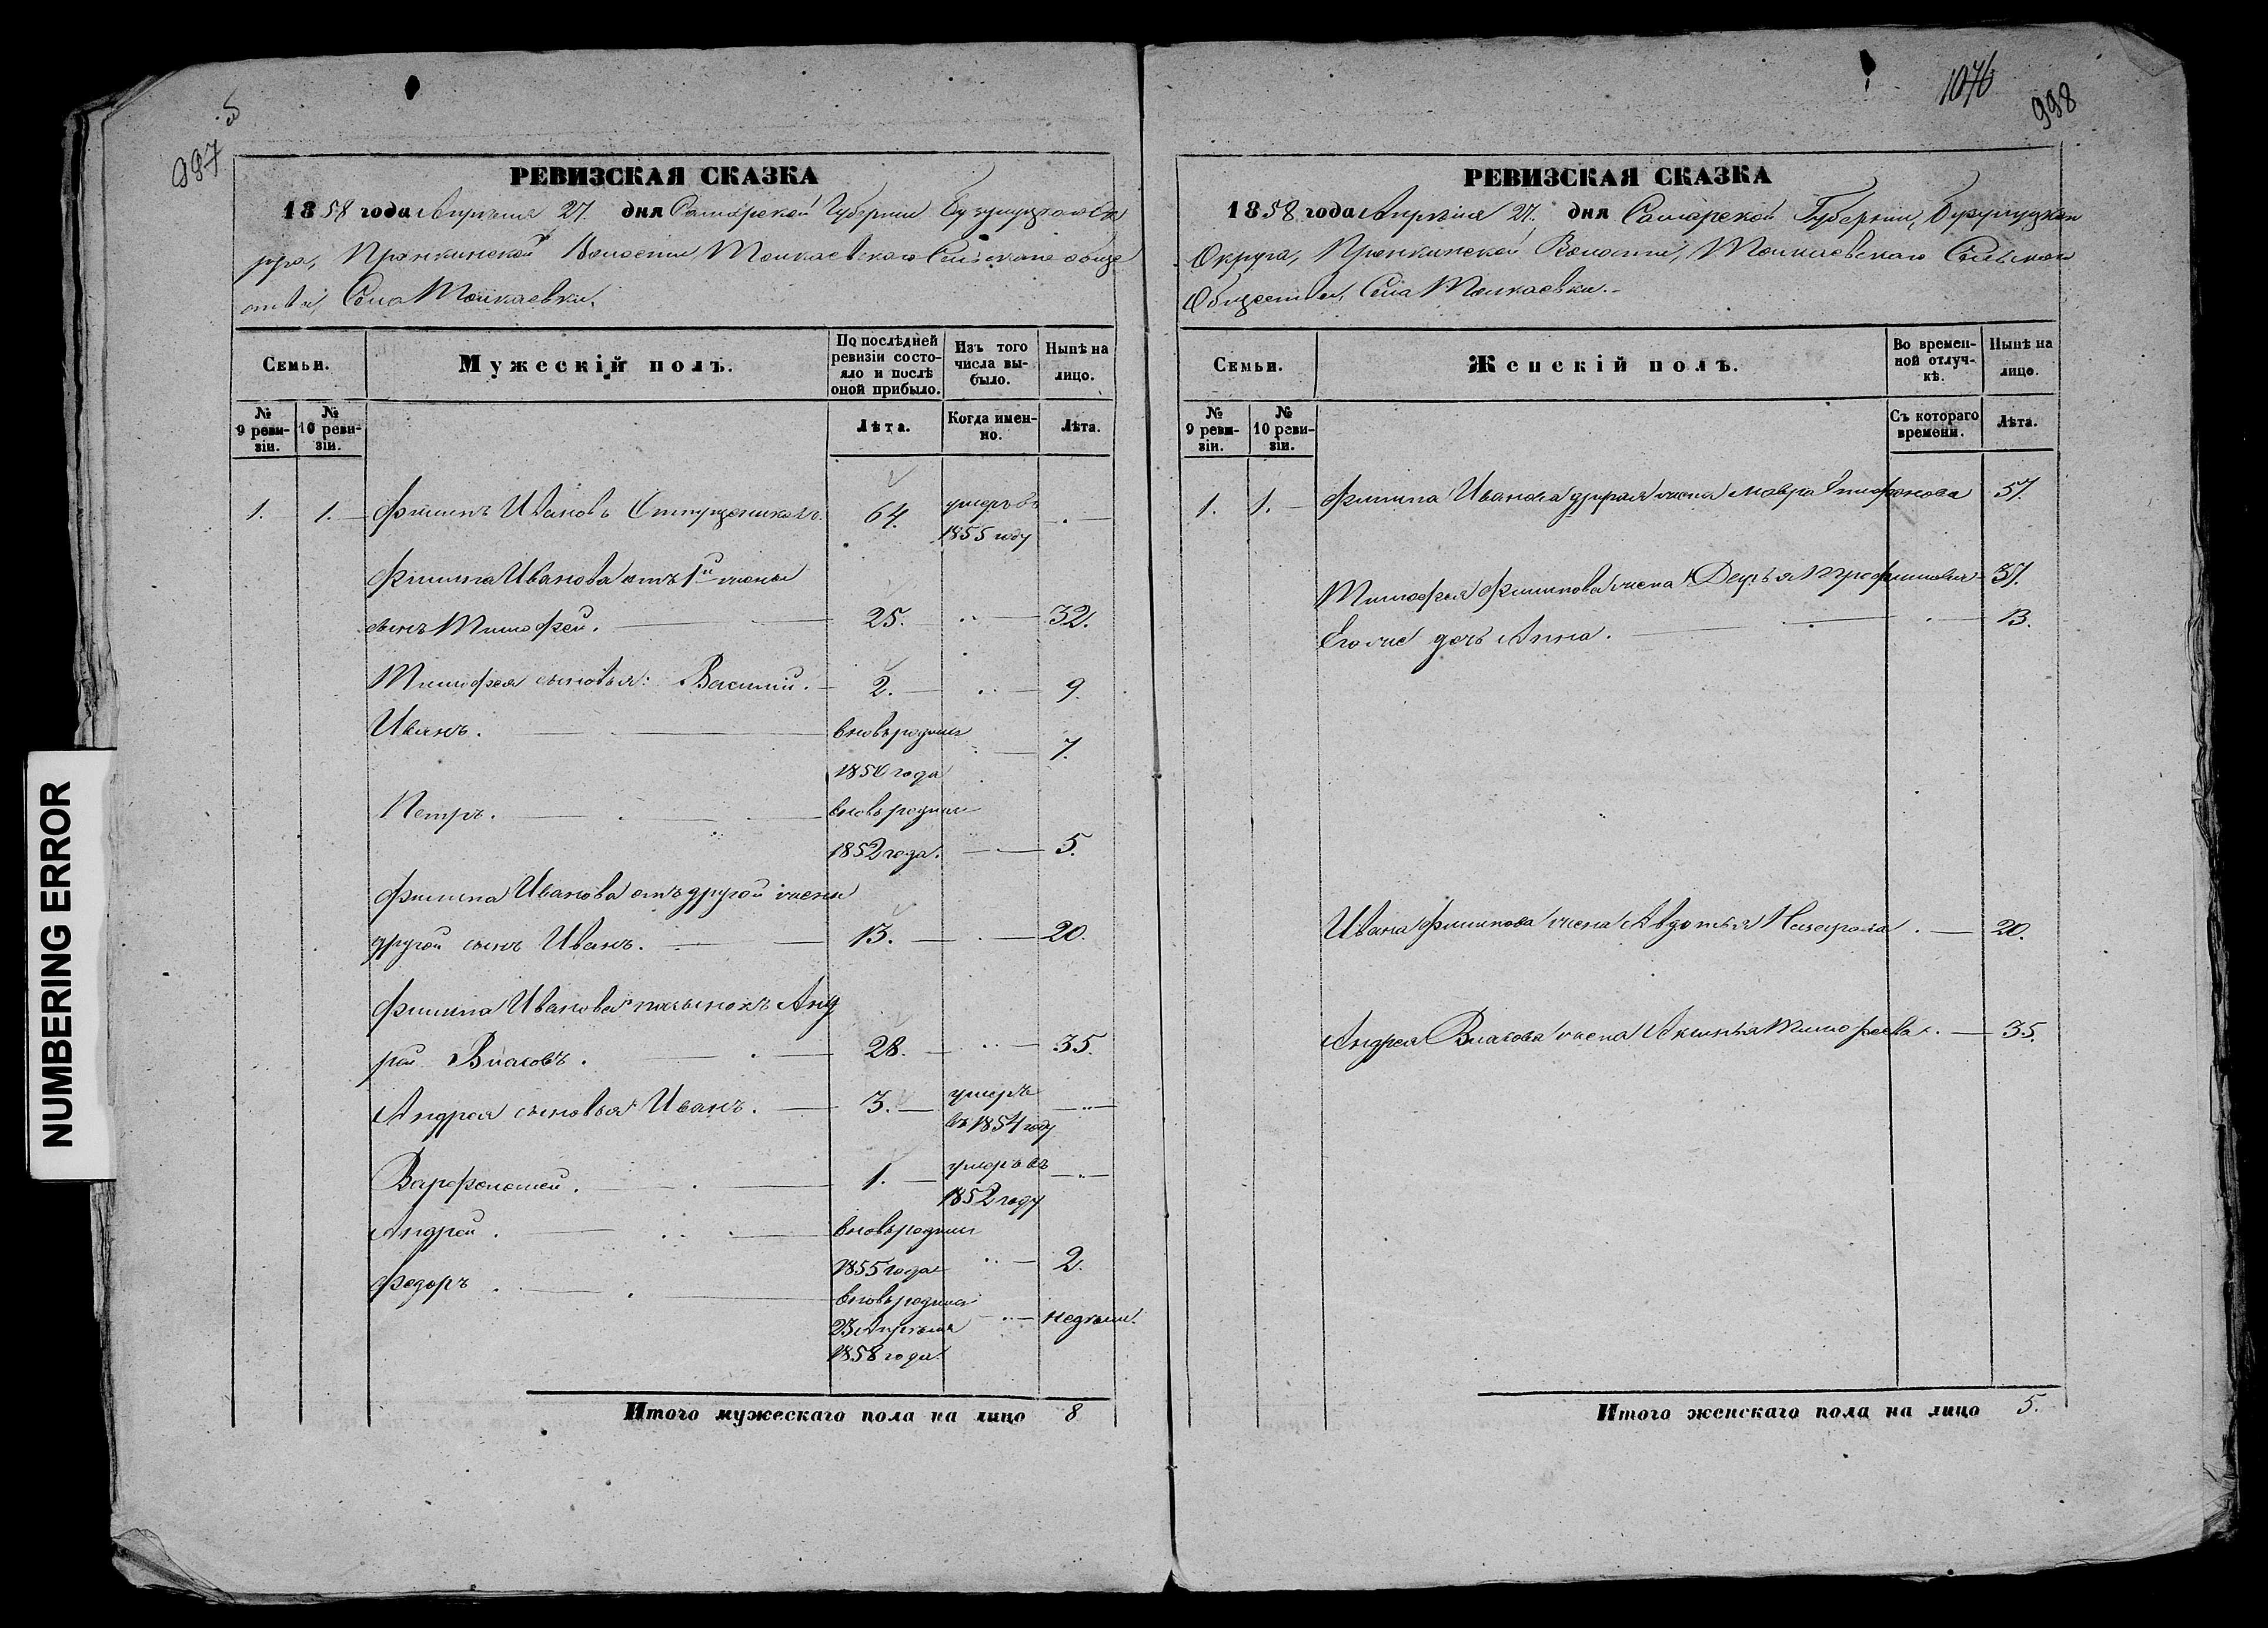 NUMBERING ERROR
997
РЕВИЗСКАЯ СКАЗКА
1858 года Апрѣля 27. дня Самарской Губерніи Бузулукскаго Ок
руга, Пронкинской Волости Толкаевскаго Сельскаго обще
ства, Села Толкаевки.
Семьи.
Мужескій полъ.
По послѣдней ревизіи состояло и послѣ оной прибыло.
Изъ того числа выбыло.
Нынѣ на лицо.
№ 9 ревизіи.
№ 10 ревизіи.
Лѣта.
Когда именно.
Лѣта.
1. 1. Филипъ Ивановъ 64. умеръ въ 1855 году
Филипа Иванова отъ 1й жены
сынъ Тимофей. 25. 32.
Тимофея сыновья: Василий. 2. 9.
Иванъ. вновь родился 7.
года
Петръ. вновь родился
1852 года. 5.
Филипа Иванова отъ другой жены
другой сынъ Иванъ. 13. 20.
Филипа Иванова пасынокъ Анд
рей Власовъ. 28. 35.
Андрея сыновья Иванъ. 3. умеръ
въ 1854 году
Варфоломей. 1. умеръ въ
1852 году
Андрей. вновь родился
1855 года 2.
Федоръ. вновь родился
23 Апрѣля недѣли.
1858 года.
Итого мужескаго пола на лицо 8
1076
998
РЕВИЗСКАЯ СКАЗКА
1858 года Апрѣля 27. дня Самарской Губерніи, Бузулукскаго
Округа, Пронкинской Волости, Толкаевскаго Сельскаго
Общества, Села Толкаевки.
Семьи.
Женскій полъ.
Во временной отлучкѣ.
Нынѣ на лицо.
№ 9 ревизіи.
№ 10 ревизіи.
Съ котораго времени.
Лѣта.
1. 1. Филипа Иванова другая жена Мавра 57.
Тимофея Филипова жена Дарья Трофимова 37.
Его же дочь Анна. 13.
Ивана Филипова жена Авдотья Назарова. 20.
Андрея Власова жена Акинья Тимофеева. 35.
Итого женскаго пола на лицо 5.